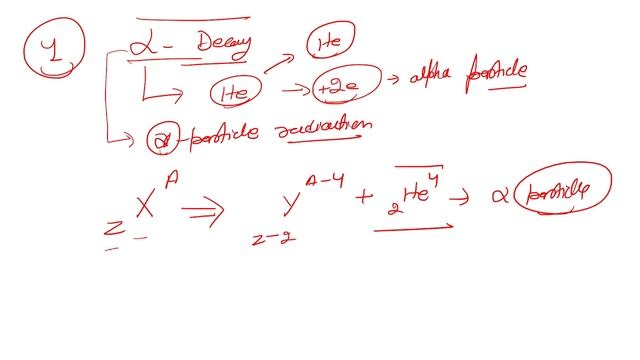 1 α - Decay
He
He → +2e → alpha particle
α - particle radiation
zX^A ⇒ z-2Y^A-4 + 2He^4 → α particle